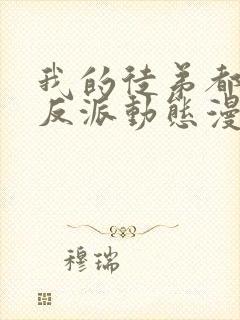 我的徒弟都
反派動態漫
穆瑞